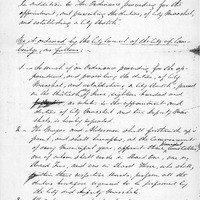 In addition to "An Ordinance providing for the
appointment, and prescribing the duties, of City Marshal,
and establishing a City Watch."
Be it ordained by the City Council of the City of Cam-
bridge, as follows:
1. So much of an Ordinance providing for the ap-
pointment, and prescribing the duties, of City
Marshal, and establishing a City Watch, passed
on the of June, eighteen hundred and
as relates to the appointment
and duties of City Marshal and his Deputy Mar-
shals, is hereby repealed.
2. The Mayor and Aldermen shall forthwith ap-
point, and shall hereafter, at the commencement
of every Municipal year, appoint three
one of whom shall reside in Ward One, one in
Ward Two, and one in Ward Three, who shall,
within their respective Wards, perform all the
duties heretofore required to be performed by
the City and Deputy Marshals.
3.